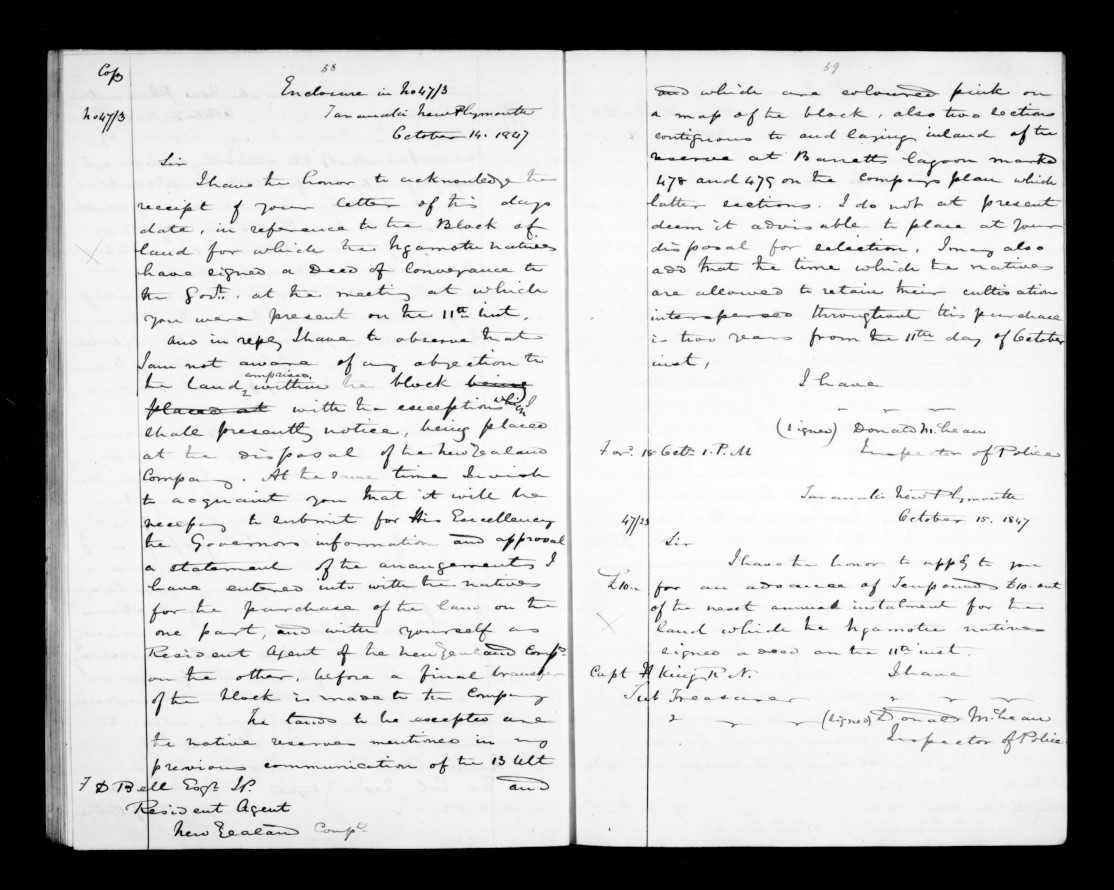 58
Copy
Enclosure in No 47/3
No 47/3
Taranaki New Plymouth
October 14. 1847
Sir
I have the honor to acknowledge the
receipt of your letter of this days
date, in reference to the Block of
land for which the Ngamotu natives
have signed a Deed of Conveyance to
the Govt. at the meeting at which
you were present on the 11th inst.
And in reply I have to observe that
I am not aware of any objection to
the land comprised within the block being
placed at with the exceptions which I
shall presently notice, being placed
at the disposal of the New Zealand
Company. At the same time I wish
to acquaint you that it will be
necessary to submit for His Excellency
the Governors information and approval
a statement of the arrangements I
have entered into with the natives
for the purchase of the land on the
one part, and with yourself as
Resident Agent of the New Zealand Compy.
on the other, before a final transfer
of the block is made to the Company
The lands to be excepted are
the native reserves mentioned in my
previous communication of the 13 Ult
and
F D Bell Esqr. J.P.
Resident Agent
New Zealand Compy
59
and which are coloured pink on
a map of the block, also two sections
contiguous to and laying inland of the
reserve at Barretts lagoon marked
478 and 479 on the Companys plan which
latter sections. I do not at present
deem it advisable to place at your
disposal for selection. I may also
add that the time which the natives
are allowed to retain their cultivation
interspersed throughout this purchase
is two years from the 11th day of October
inst,
I have
(signed) Donald McLean
Inspector of Police
Ford. 15 Octr. 1. P.M
Taranaki New Plymouth
October 15. 1847
47/23
Sir
I have the honor to apply to you
£10..
for an advance of Ten pounds £10. out
of the next annual instalment for the
land which the Ngamotu natives
signed a deed on the 11th inst.
Capt H King R.N.
I have
Sub Treasurer
(signed) Donald McLean
Inspector of Police